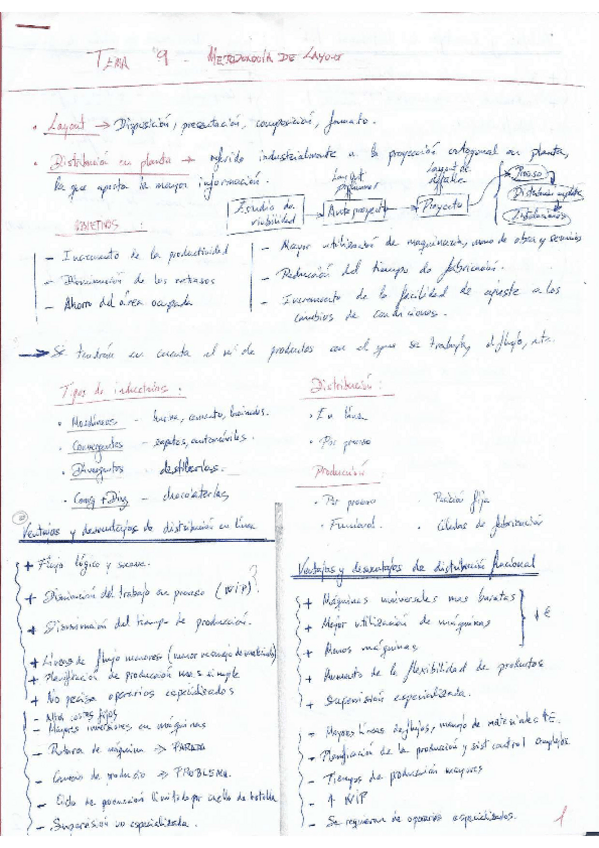 TEMA 9 - METODOLOGÍA DE LAYOUT
• Layout → Disposición, presentación, composición, formato.
• Distribución en planta → referido industrialmente a la proyección ortogonal en planta,
la que aporta la mayor información.
Layout preliminar
Layout de detalle
Estudio de viabilidad → Anteproyecto → Proyecto
Proceso
Distribución en planta
Instalaciones
OBJETIVOS :
- Incremento de la productividad
- Disminución de los retrasos
- Ahorro del área ocupada
- Mayor utilización de maquinaria, mano de obra y servicios
- Reducción del tiempo de fabricación.
- Incremento de la facilidad de ajuste a los
cambios de condiciones.
→ Se tendrán en cuenta el nº de productos con el que se trabaja, el flujo, etc.
Tipos de industrias :
• Monolíneas - harina, cemento,
• Convergentes - zapatos, automóviles.
• Divergentes - destilerías.
• Conv + Div - chocolaterías
Distribución :
• En línea
• Por proceso
Producción
• Por proceso
• Funcional.
• Posición fija
• Células de fabricación
Ventajas y desventajas de distribución en línea
+ Flujo lógico y suave.
+ Disminución del trabajo en proceso (WIP).
+ Disminución del tiempo de producción.
+ Líneas de flujo menores (menor manejo de materiales)
+ Planificación de producción mas simple
+ No precisa operarios especializados
- Altos costes fijos
- Mayores inversiones en máquinas
- Rotura de máquina => PARADA
- Cambio de producto => PROBLEMA.
- Ciclo de producción limitado por cuello de botella
- Supervisión no especializada.
Ventajas y desventajas de distribución funcional
+ Máquinas universales mas baratas
+ Mejor utilización de máquinas
+ Menos máquinas
↓ €
+ Aumento de la flexibilidad de productos
+ Supervisión especializada.
- Mayores líneas de flujos, manejo de materiales ↑€.
- Planificación de la producción y sist control complejos.
- Tiempos de producción mayores
- ↑ WIP
- Se requieren de operarios especializados.
1